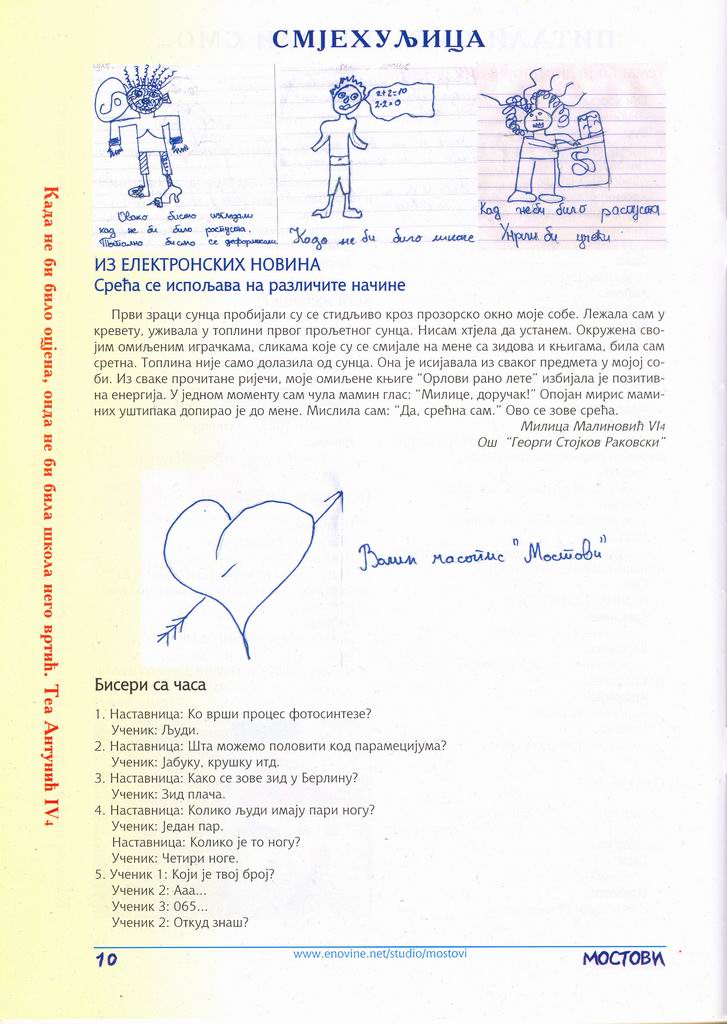 СМЈЕХУЉИЦА
2+2=10
2-2=0
Овако бисмо изгледали
кад не би било распуста.
Потпуно бисмо се деформисали
Када не би било школе
Кад неби било распуста
Умрли би учећи.
Када не би било оцјена, онда не би била школа него вртић. Теа Антунић IV4
ИЗ ЕЛЕКТРОНСКИХ НОВИНА
Срећа се испољава на различите начине
Први зраци сунца пробијали су се стидљиво кроз прозорско окно моје собе. Лежала сам у
кревету, уживала у топлини првог прољетног сунца. Нисам хтјела да устанем. Окружена сво-
јим омиљеним играчкама, сликама које су се смијале на мене са зидова и књигама, била сам
сретна. Топлина није само долазила од сунца. Она је исијавала из сваког предмета у мојој со-
би. Из сваке прочитане ријечи, моје омиљене књиге "Орлови рано лете" избијала је позитив-
на енергија. У једном моменту сам чула мамин глас: "Милице, доручак!" Опојан мирис мами-
них уштипака допирао је до мене. Мислила сам: "Да, срећна сам." Ово се зове срећа.
Милица Малиновић VI4
Ош "Георги Стојков Раковски"
Волим часопис "Мостови"
Бисери са часа
1. Наставница: Ко врши процес фотосинтезе?
Ученик: Људи.
2. Наставница: Шта можемо половити код парамецијума?
Ученик: Јабуку, крушку итд.
3. Наставница: Како се зове зид у Берлину?
Ученик: Зид плача.
4. Наставница: Колико људи имају пари ногу?
Ученик: Један пар.
Наставница: Колико је то ногу?
Ученик: Четири ноге.
5. Ученик 1: Који је твој број?
Ученик 2: Ааа...
Ученик 3: 065...
Ученик 2: Откуд знаш?
10
www.enovine.net/studio/mostovi
МОСТОВИ